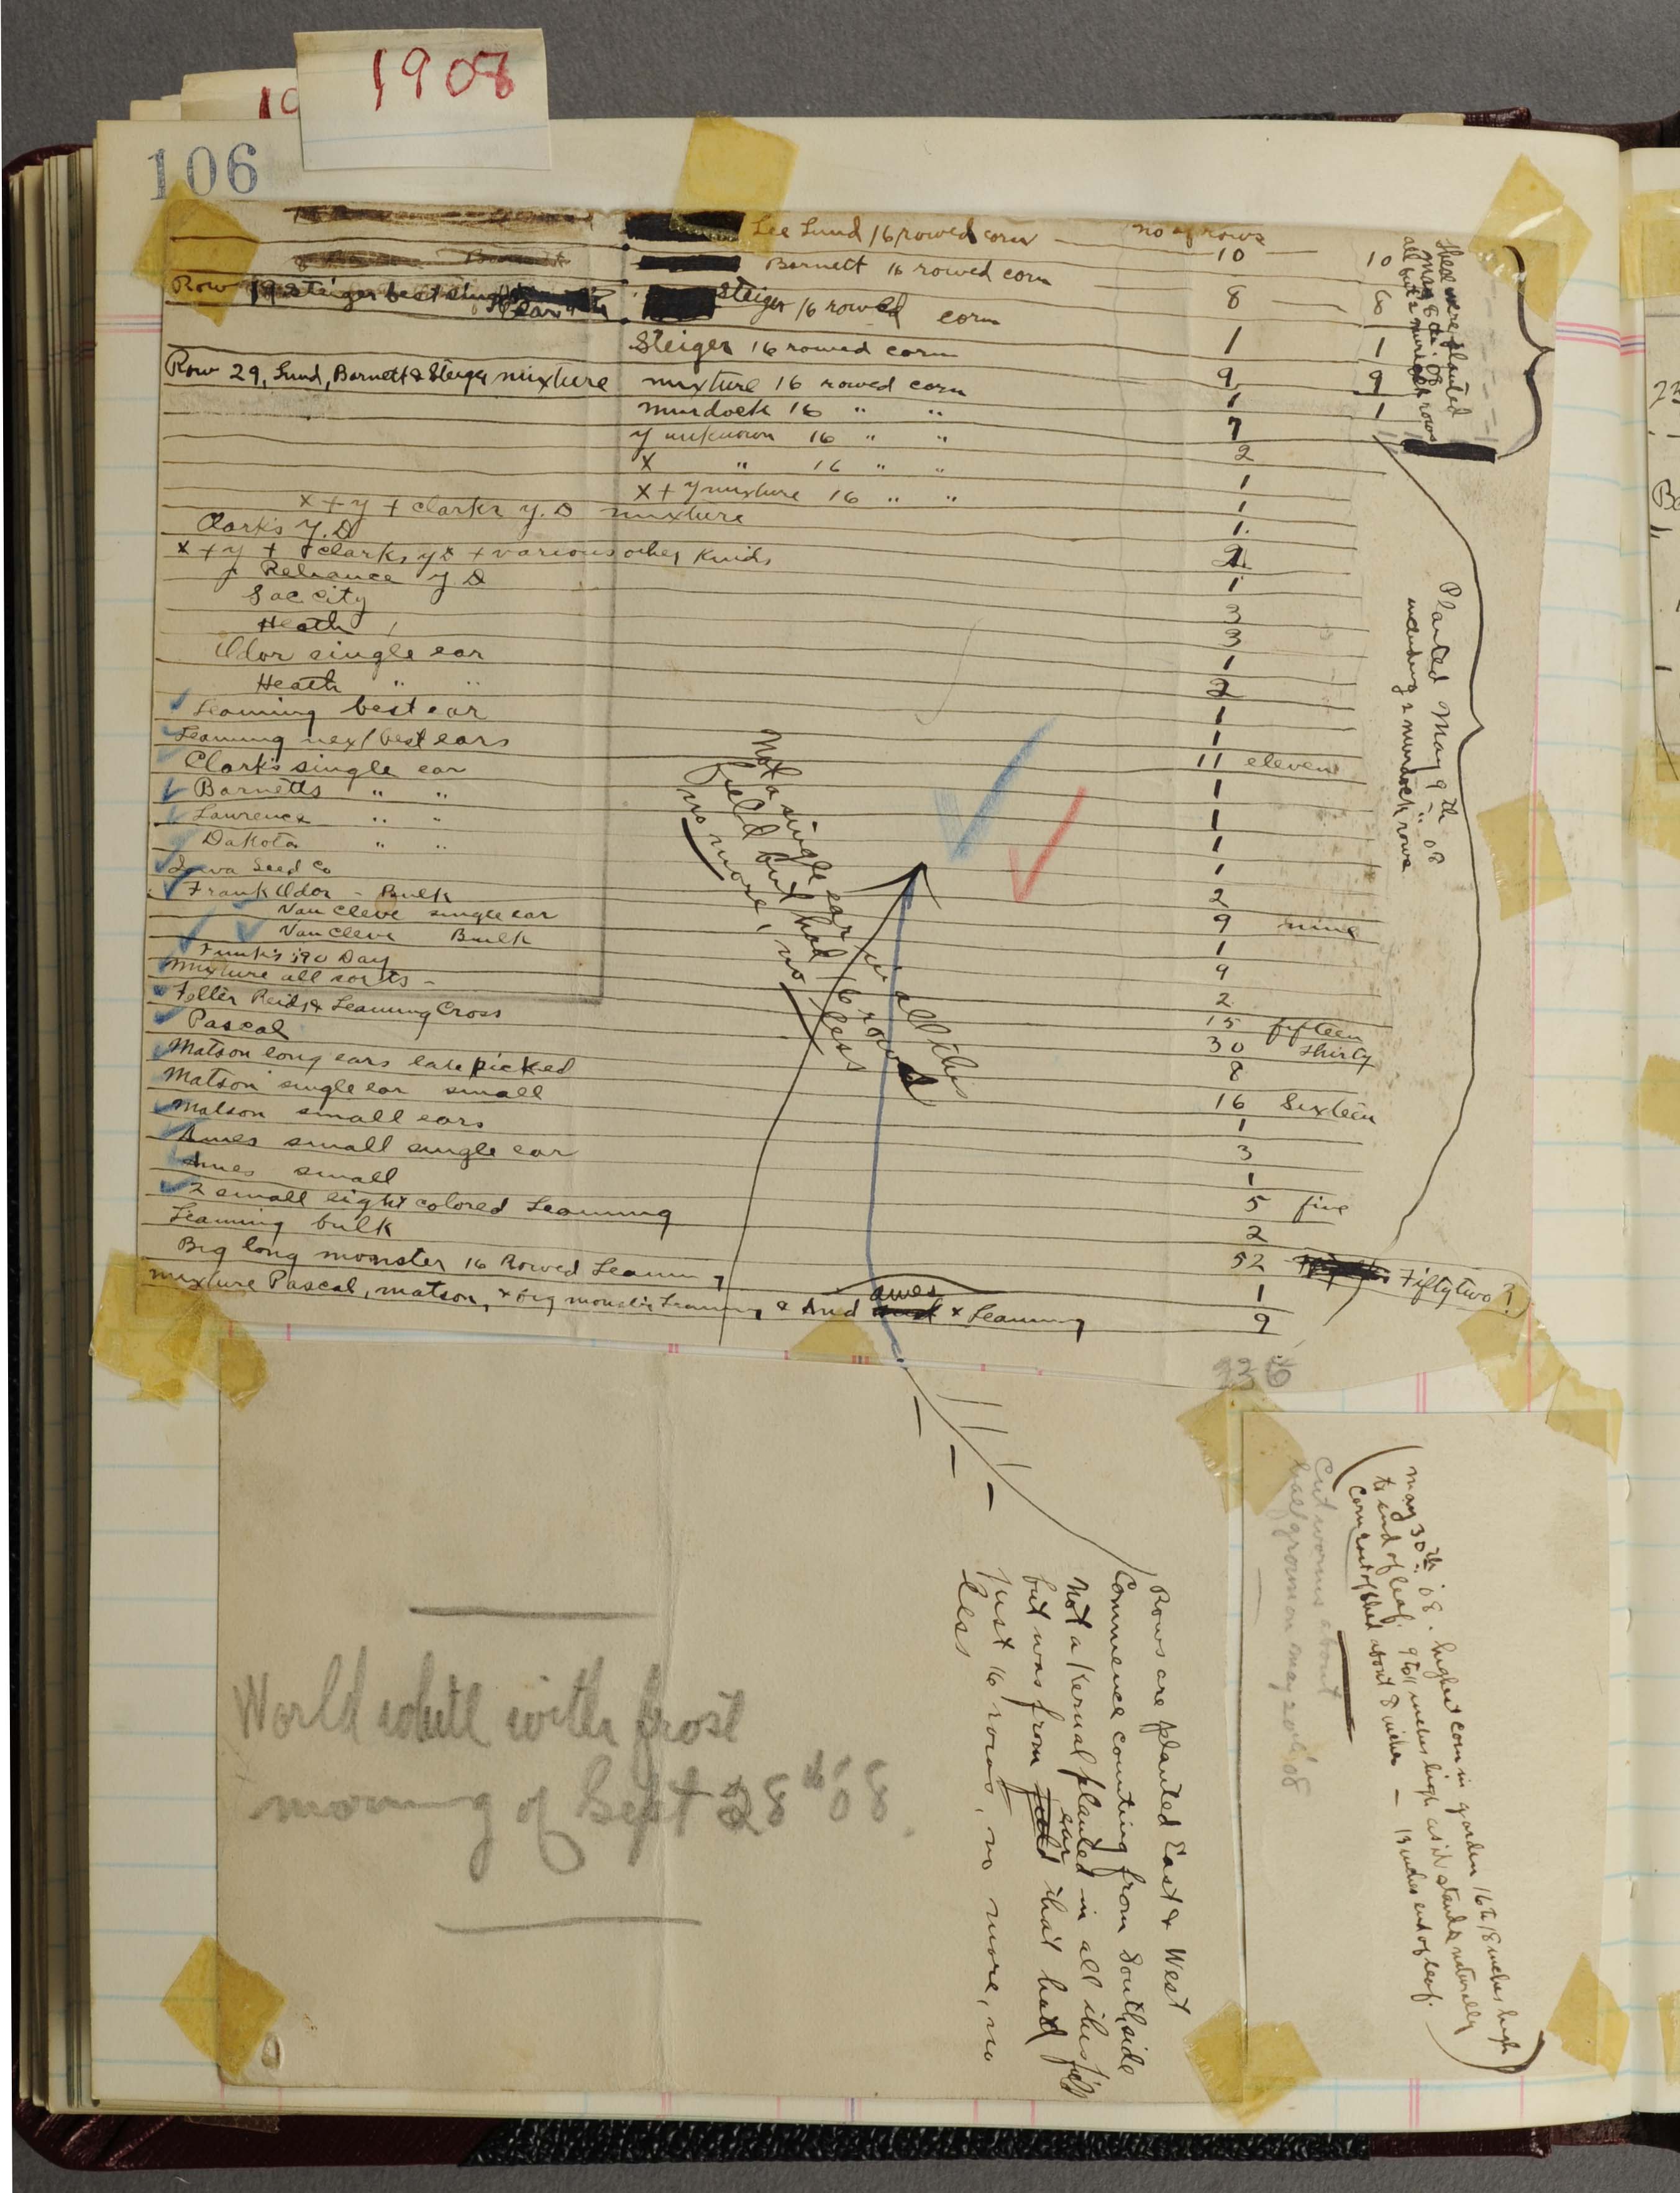 1908
19
106
Lee Lund 16 rowed corn no of rows
10 10
Barnett 16 rowed corn
8 6
Row 19 Steiger best single ear
Steiger 16 rowed corn
1 1
Steiger 16 rowed corn
9 9
Row 29, Lund, Barnett & Steiger mixture mixture 16 rowed corn
1 1
murdock 16 " "
7
y unknown 16 " "
2
x " 16 " "
1
x + y mixture 16 " "
1
x + y + Clarks y. D mixture
1
Clark's y. D
2
x + y + Clarks yD + various other kinds
1
Reliance y D
3
Sac City
3
Heath
1
Odor single ear
2
Heath " "
1
Leaming best ear
1
Leaming next best ears
11 eleven
Clark's single ear
1
Barnetts " "
1
Lawrence " "
1
Dakota " "
1
Iowa Seed Co
2
Frank Odor - Bulk
9 nine
Van Cleve single ear
1
Van Cleve Bulk
9
Funk's 90 Day
2
Mixture all sorts -
15 fifteen
Feller Reids & Leaming Cross
30 thirty
Pascal
Matson long ears late picked
16 Sixteen
Matson single ear small
1
Matson small ears
3
Ames small single ear
1
Ames small
5 five
2 small light colored Leaming
2
Leaming bulk
52 Fifty two ?
Big long monster 16 Rowed Leaming
1
mixture Pascal, matson, & big monster Leaming & And ames & Leaming
9
336
These were planted
May 6th '08
all but 2 murdock rows
Planted May 9th '08
including 2 murdock rows
Not a single ear in all this
field but had 16 rows
no more, no less
Rows are planted East & West
Commence counting from South side
Not a kernal planted in all this field
but was from ear that had
just 16 rows, no more, no
less
World white with frost
morning of Sept 28th '08.
May 30th '08. highest corn in garden 16 to 18 inches high
to end of leaf. 9 to 11 inches high as it stands naturally
Corn out of shed about 8 inches — 13 inches end of leaf.
Cut worms about
half grown on may 20th '08